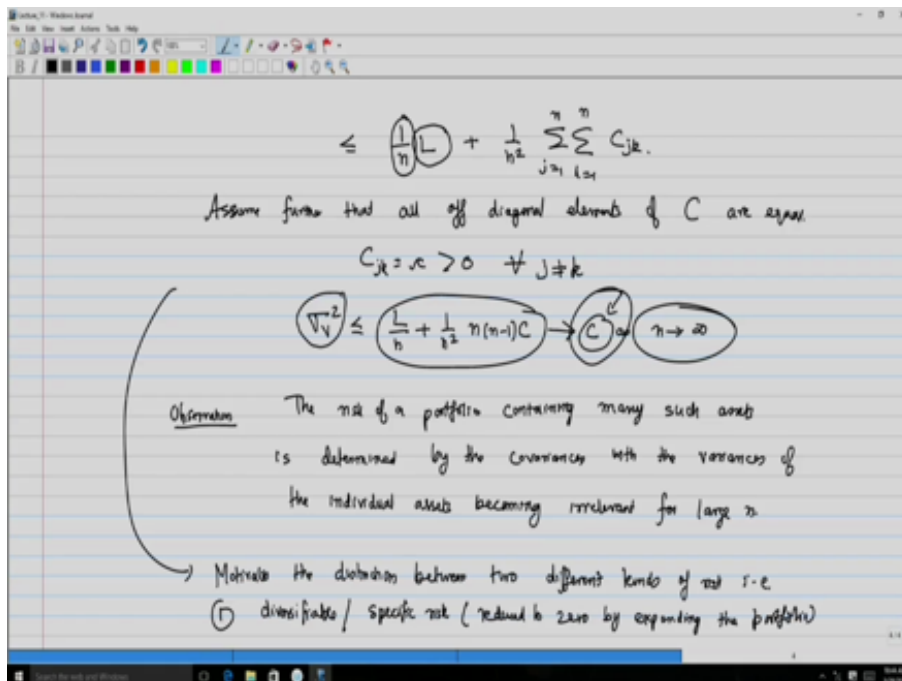 Lecture_11 - Windows Journal
File Edit View Insert Actions Tools Help
B I
≤ 1/n L + 1/n² Σ_{j=1}^{n} Σ_{k=1}^{n} C_jk.
Assume further that all off diagonal elements of C are equal.
C_jk = c > 0 ∀ j ≠ k
σ_V² ≤ L/n + 1/n² n(n-1)C → C as n → ∞
Observation The risk of a portfolio containing many such assets
is determined by the covariances with the variances of
the individual assets becoming irrelevant for large n
→ Motivates the distinction between two different kinds of risk i.e
① diversifiable / specific risk (reduced to zero by expanding the portfolio)
Search the web and Windows